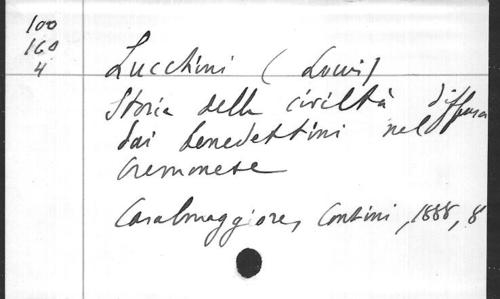 100
160
4
Lucchini (Louis)
Storia della civiltà diffusa
dai benedettini nel
cremonese
Casalmaggiore, Contini, 1888, 8